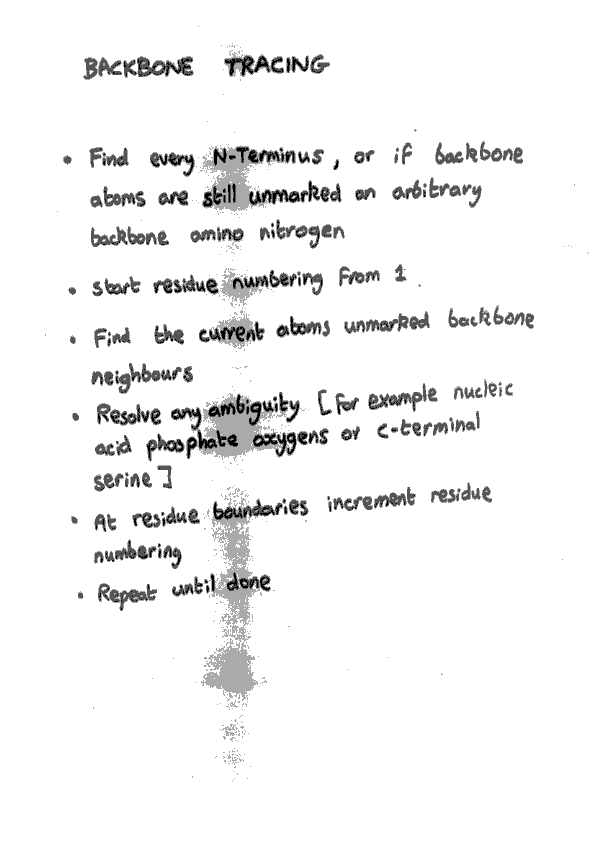 BACKBONE TRACING
• Find every N-Terminus, or if backbone
atoms are still unmarked an arbitrary
backbone amino nitrogen
• Start residue numbering from 1.
• Find the current atoms unmarked backbone
neighbours
• Resolve any ambiguity [for example nucleic
acid phosphate oxygens or C-terminal
serine]
• At residue boundaries increment residue
numbering
• Repeat until done